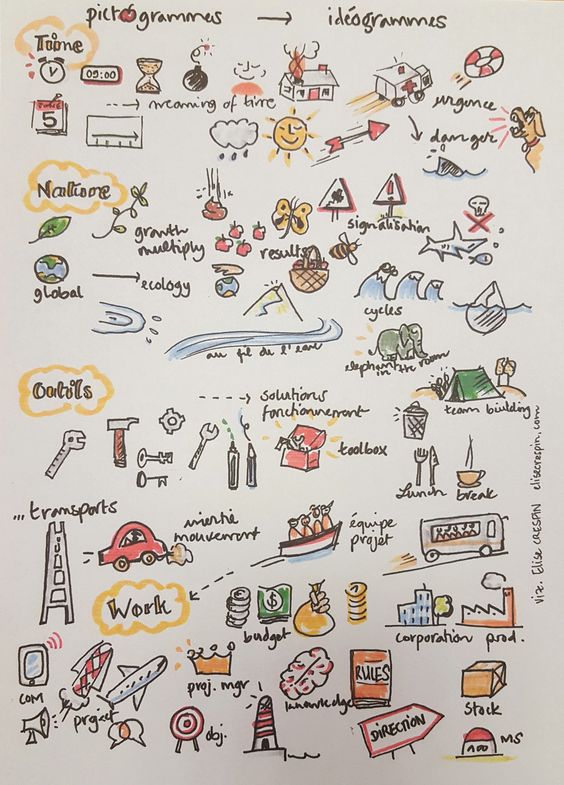 pictogrammes → idéogrammes
Time
09:00
urgence
5
meaning of time
danger
Nature
growth
multiply
results
signalisation
global
ecology
cycles
au fil de l'eau
elephant
in the room
Outils
solutions
fonctionnement
team building
toolbox
Lunch
break
... transports
inertie
mouvement
équipe
projet
Work
$
budget
corporation
prod.
COM
project
proj. mgr
knowledge
RULES
Stock
obj.
DIRECTION
100
MS
viz. Elise CRESPIN elisecrespin.com